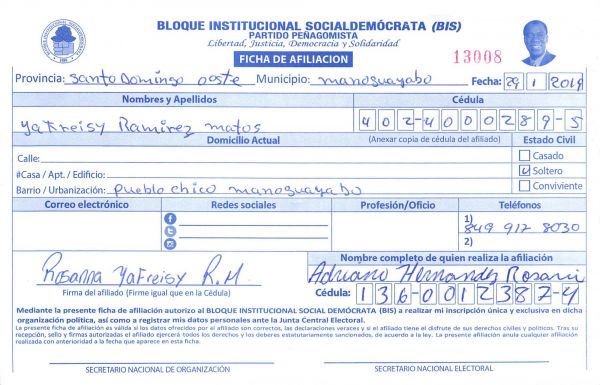 BLOQUE INSTITUCIONAL SOCIALDEMÓCRATA (BIS)
PARTIDO PEÑAGOMISTA
Libertad, Justicia, Democracia y Solidaridad
FICHA DE AFILIACION
13008
Provincia: Santo Domingo oeste Municipio: manoguayabo Fecha: 29 1 2019
Nombres y Apellidos Cédula
Yafreisy Ramirez matos 402-4000289-5
Domicilio Actual (Anexar copia de cédula del afiliado) Estado Civil
Calle: Casado
#Casa / Apt. / Edificio: Soltero
Barrio / Urbanización: Pueblo chico manoguayabo Conviviente
Correo electrónico Redes sociales Profesión/Oficio Teléfonos
1) 849 917 8030
2)
Nombre completo de quien realiza la afiliación
Rosanna Yafreisy R.M. Adriano Hernandez Rosario
Firma del afiliado (Firme igual que en la Cédula) Cédula: 136-0012387-4
Mediante la presente ficha de afiliación autorizo al BLOQUE INSTITUCIONAL SOCIAL DEMÓCRATA (BIS) a realizar mi inscripción única y exclusiva en dicha
organización política, así como a registrar mis datos personales ante la Junta Central Electoral.
La presente ficha de afiliación es válida si los datos ofrecidos por el afiliado son correctos, las declaraciones veraces y si el afiliado tiene el disfrute de sus derechos civiles y políticos. Tras su
recepción, sello y firmas autorizadas el afiliado ejercerá todos los derechos y los deberes estatutariamente sancionados, de acuerdo a la ley. La presente afiliación anula cualquier afiliación
realizada con anterioridad a la fecha que aparece en esta ficha.
SECRETARIO NACIONAL DE ORGANIZACIÓN SECRETARIO NACIONAL ELECTORAL